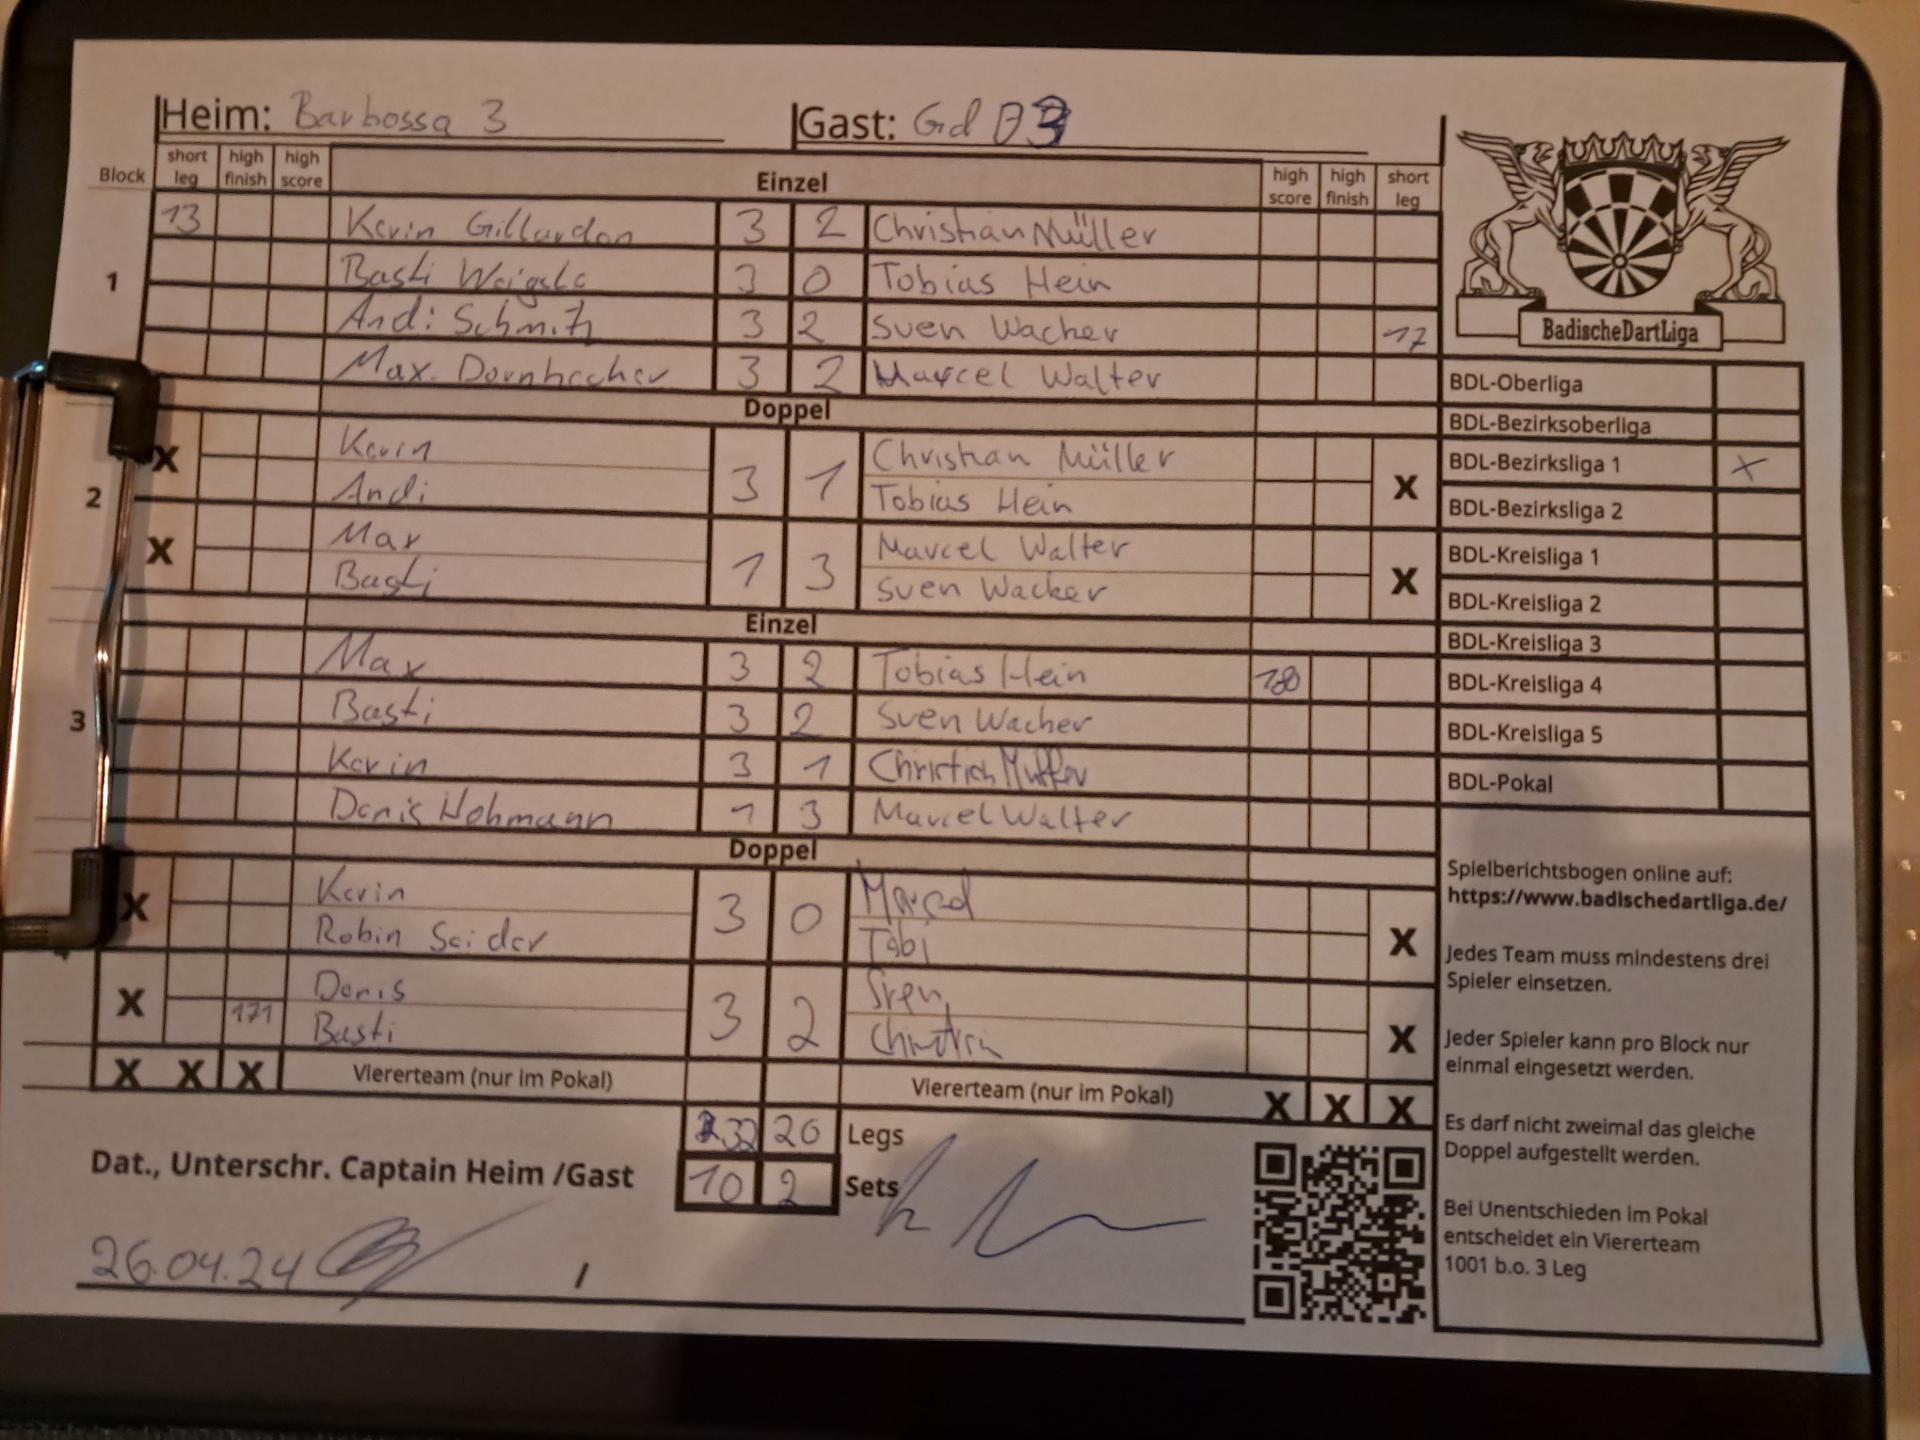 Heim: Barbossa 3 Gast: Gd D3
Block short leg high finish high score Einzel high score high finish short leg
1
13 Kevin Gillardon 3 2 Christian Müller
Basti Weigele 3 0 Tobias Hein
Andi Schmitz 3 2 Sven Wacker 17
Max. Dornhecker 3 2 Marcel Walter
Doppel
2
X Kevin 3 1 Christian Müller X
Andi Tobias Hein
X Max 1 3 Marcel Walter X
Basti Sven Wacker
Einzel
3
Max 3 2 Tobias Hein 180
Basti 3 2 Sven Wacker
Kevin 3 1 Christian Müller
Denis Hohmann 1 3 Marcel Walter
Doppel
X Kevin 3 0 Marcel X
Robin Seider Tobi
X Denis 3 2 Sven X
171 Basti Christian
X X X Viererteam (nur im Pokal) Viererteam (nur im Pokal) X X X
32 20 Legs
Dat., Unterschr. Captain Heim /Gast 10 2 Sets
26.04.24 /
BadischeDartLiga
BDL-Oberliga
BDL-Bezirksoberliga
BDL-Bezirksliga 1 X
BDL-Bezirksliga 2
BDL-Kreisliga 1
BDL-Kreisliga 2
BDL-Kreisliga 3
BDL-Kreisliga 4
BDL-Kreisliga 5
BDL-Pokal
Spielberichtsbogen online auf:
https://www.badischedartliga.de/
Jedes Team muss mindestens drei
Spieler einsetzen.
Jeder Spieler kann pro Block nur
einmal eingesetzt werden.
Es darf nicht zweimal das gleiche
Doppel aufgestellt werden.
Bei Unentschieden im Pokal
entscheidet ein Viererteam
1001 b.o. 3 Leg